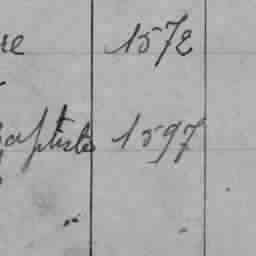 re 1572
Baptiste 1597
"